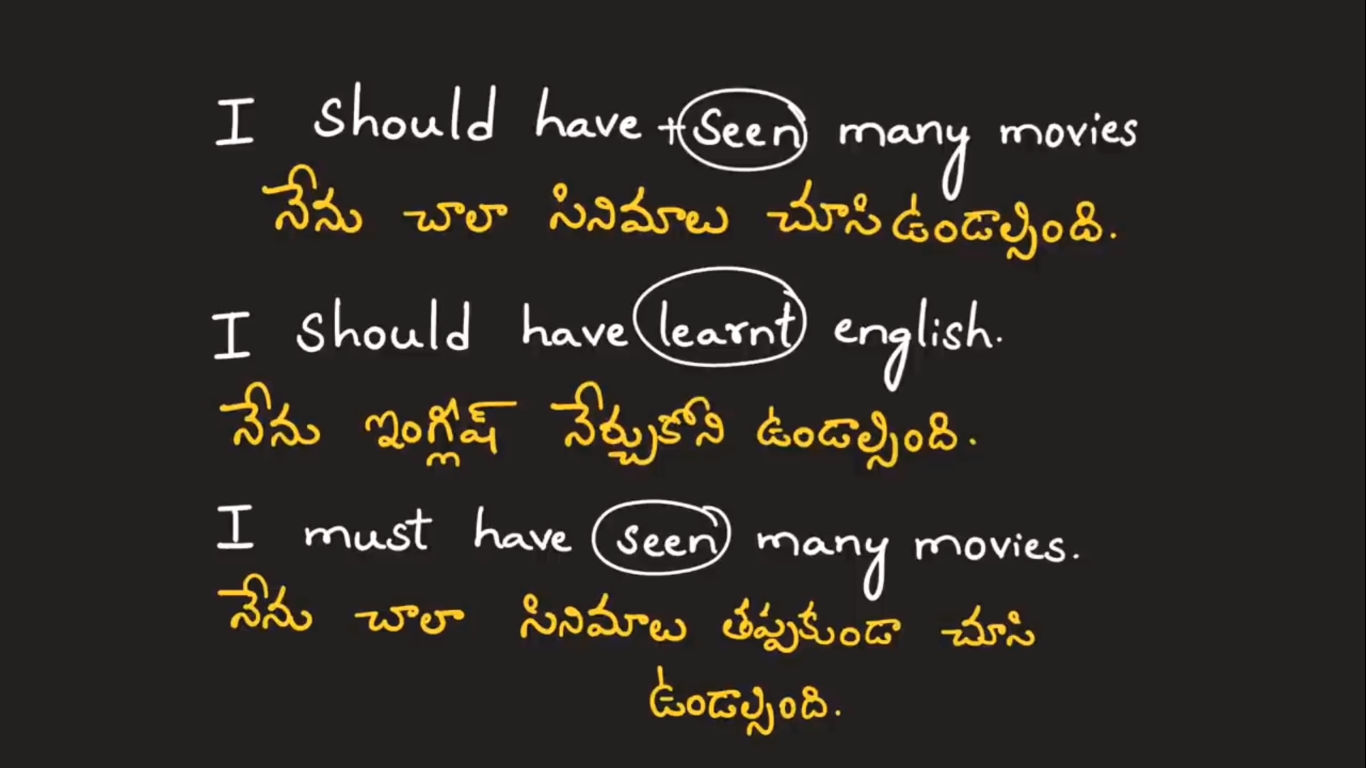 I should have + seen many movies
నేను చాలా సినిమాలు చూసి ఉండాల్సింది.
I should have learnt english.
నేను ఇంగ్లీష్ నేర్చుకోని ఉండాల్సింది.
I must have seen many movies.
నేను చాలా సినిమాలు తప్పకుండా చూసి
ఉండాల్సింది.